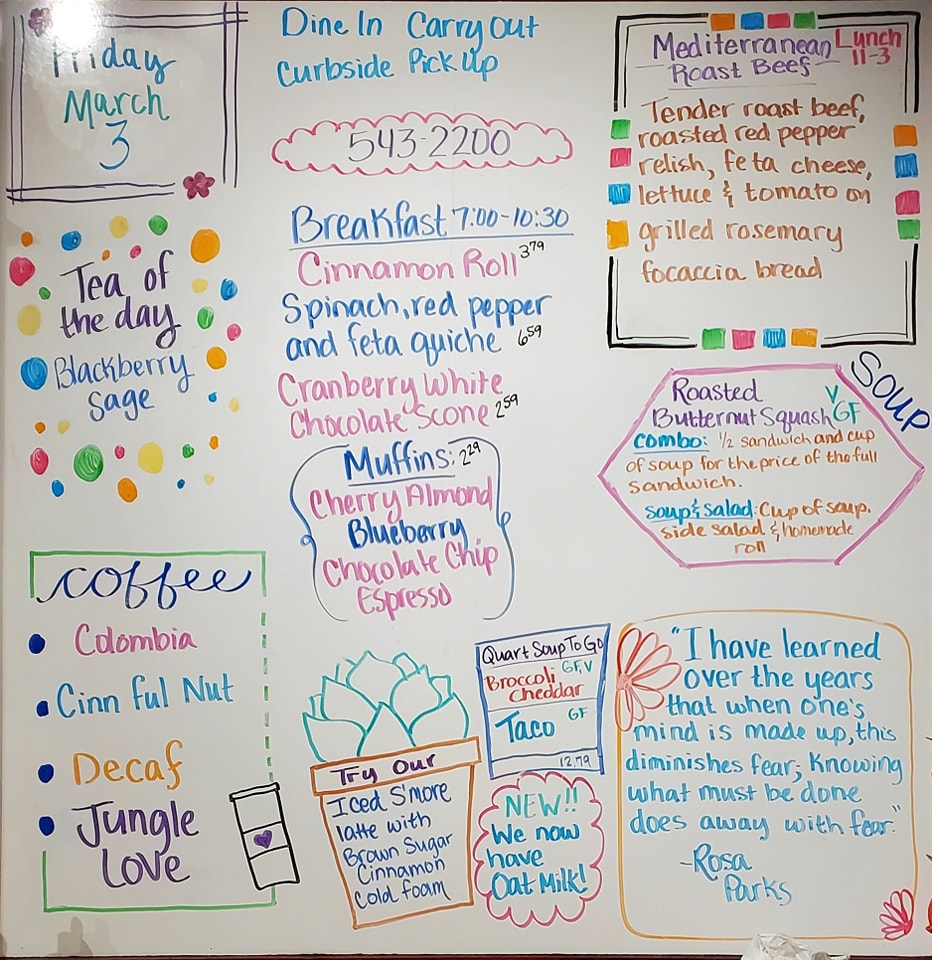 Friday
March
3
Dine In Carry Out
Curbside Pick Up
543-2200
Breakfast 7:00-10:30
Cinnamon Roll 3.79
Spinach, red pepper
and feta quiche 6.59
Cranberry White
Chocolate Scone 2.59
Muffins: 2.29
Cherry Almond
Blueberry
Chocolate Chip
Espresso
Tea of
the day
Blackberry
Sage
Coffee
Colombia
Cinn ful Nut
Decaf
Jungle
Love
Try Our
Iced S'more
latte with
Brown Sugar
Cinnamon
cold foam
Quart Soup To Go
Broccoli GF, V
Cheddar
Taco GF
12.79
NEW!!
We now
have
Oat Milk!
Mediterranean
Roast Beef
Lunch
11-3
Tender roast beef,
roasted red pepper
relish, feta cheese,
lettuce & tomato on
grilled rosemary
focaccia bread
Soup
Roasted
Butternut Squash V GF
Combo: 1/2 sandwich and cup
of soup for the price of the full
sandwich.
Soup & Salad: Cup of soup.
side salad & homemade
roll
"I have learned
over the years
that when one's
mind is made up, this
diminishes fear; Knowing
what must be done
does away with fear."
-Rosa
Parks